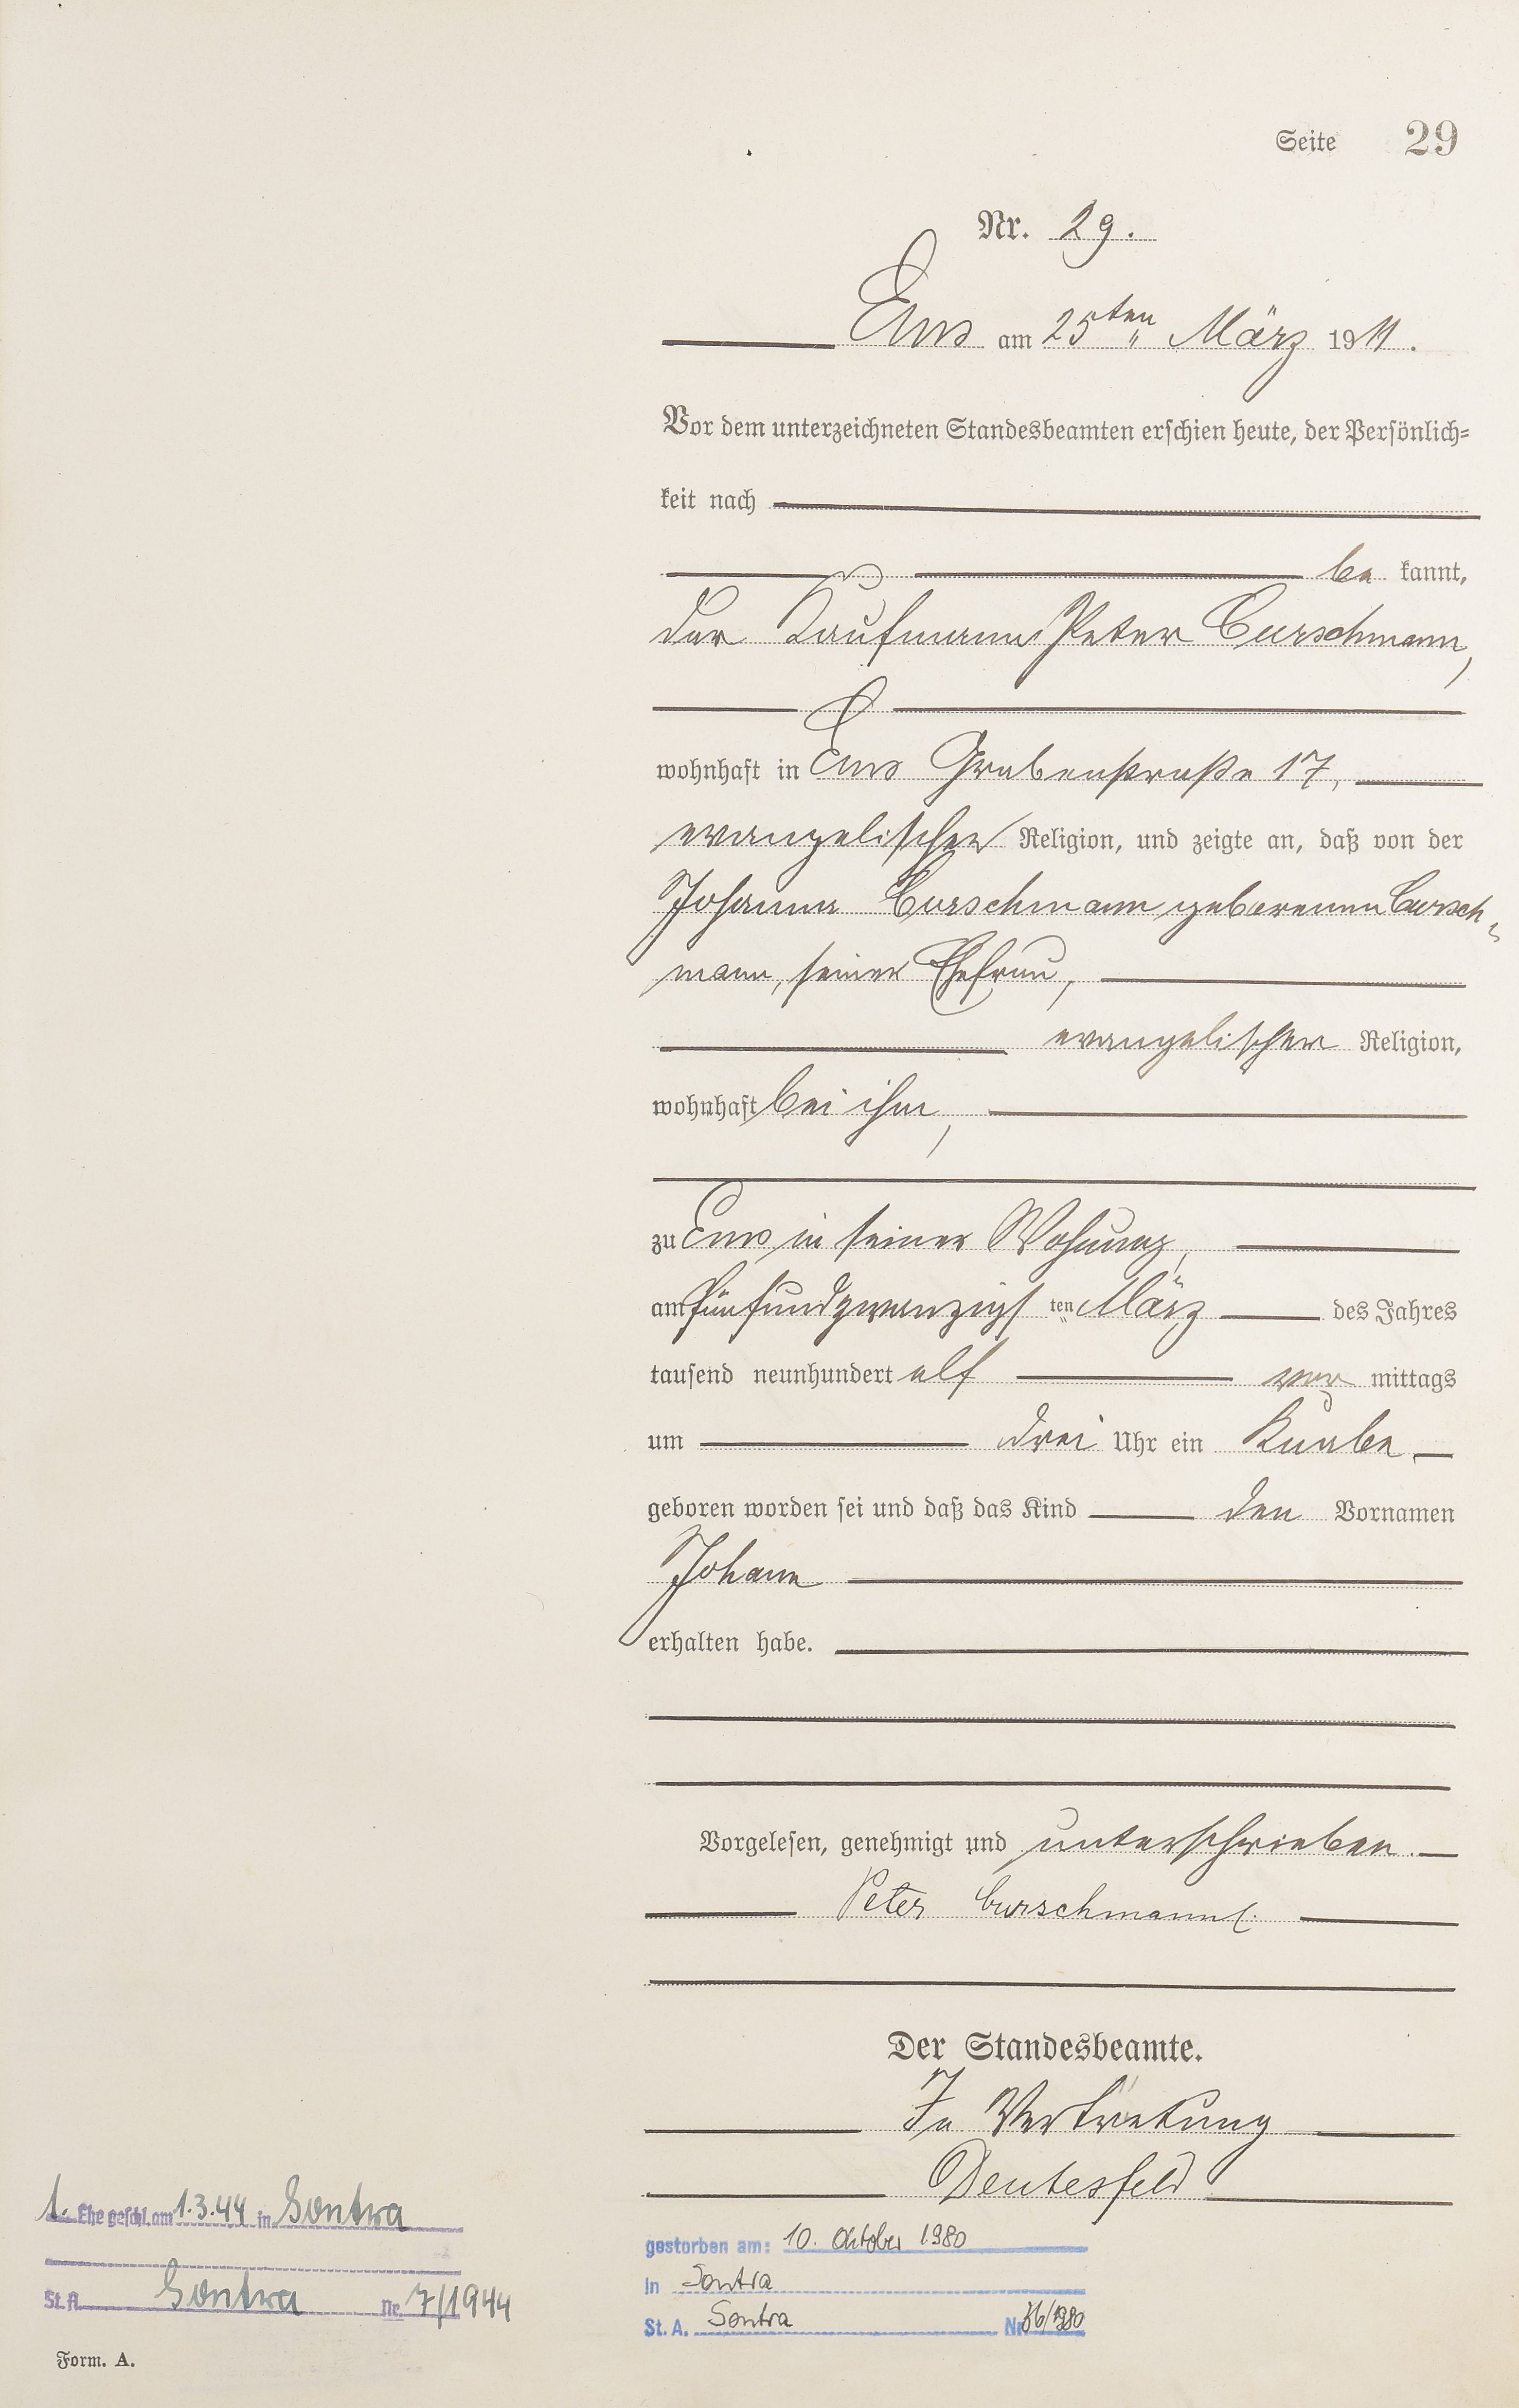 Seite 29
Nr. 29.
Ems am 25ten März 1911.
Vor dem unterzeichneten Standesbeamten erschien heute, der Persönlich-
keit nach
be kannt,
der Kaufmann Peter Curschmann,
wohnhaft in Ems Grabenstraße 17,
evangelischer Religion, und zeigte an, daß von der
Johanna Curschmann geborenen Cursch-
mann, seiner Ehefrau,
evangelischer Religion,
wohnhaft bei ihm,
zu Ems in seiner Wohnung,
am fünfundzwanzigsten März des Jahres
tausend neunhundert elf vor mittags
um drei Uhr ein Knabe
geboren worden sei und daß das Kind den Vornamen
Johann
erhalten habe.
Vorgelesen, genehmigt und unterschrieben.
Peter Curschmann
Der Standesbeamte.
In Vertretung
1. Ehe geschl. am 1.3.44 in Sontra
St. A. Sontra Nr. 7/1944
gestorben am: 10. Oktober 1980
in Sontra
St. A. Sontra Nr.
Form. A.